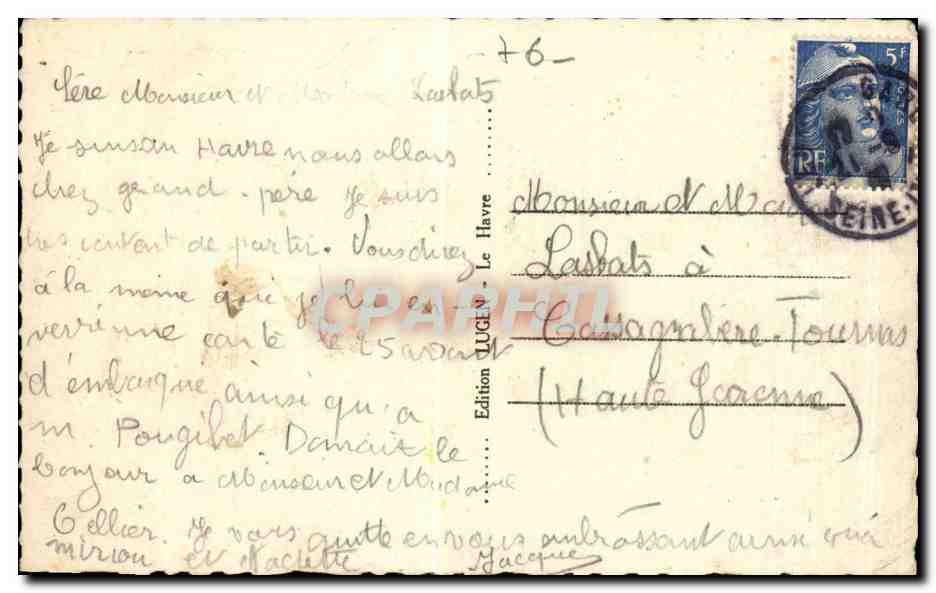 76
5F
POSTES
RF
GARE
SEINE
Monsieur et Lasbats
Je suis au Havre nous allons
chez grand-père je suis
très content de partir. Vous direz
à la meme que je
verrai une carte le 25 avant
d'embarqué ainsi qu'a
m. Pougibet. Donnait le
bonjour a Monsieur et Madame
Tellier. Je vais quitte en vous embrassant ainsi qu'a
mirion et Jacques
Edition LUGEN - Le Havre
CPAPHIL
Monsieur et
Lasbats à
Cassagnabère-Tournas
(Haute Garonne)